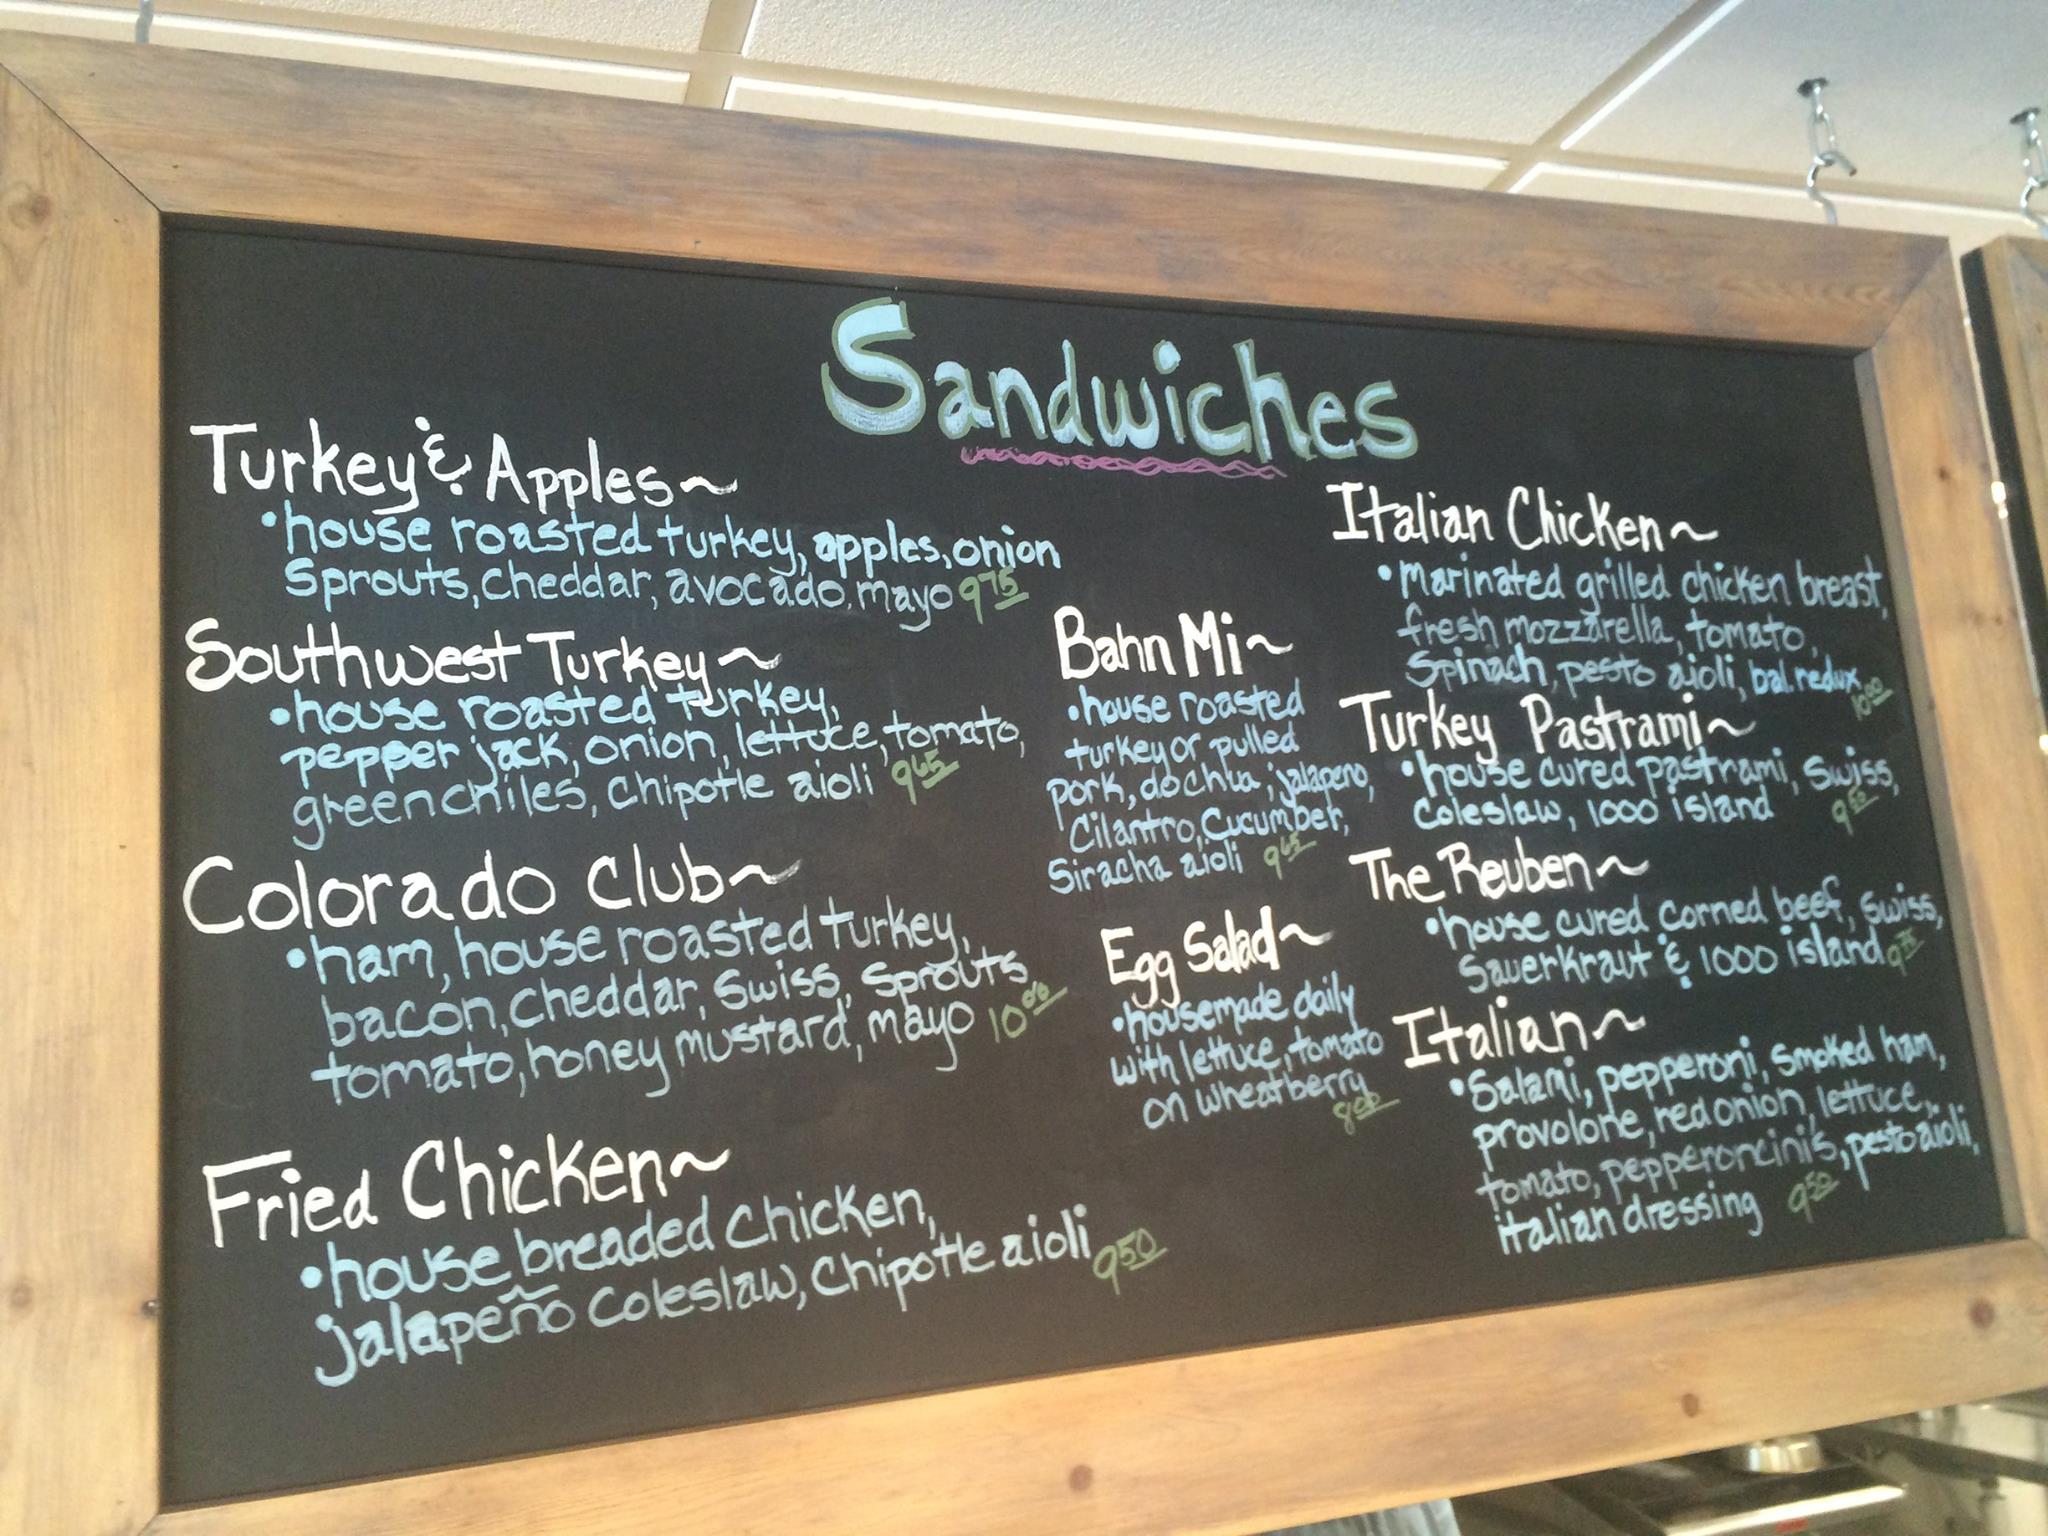 Sandwiches
Turkey & Apples~
•house roasted turkey, apples, onion
sprouts, cheddar, avocado, mayo 9.75
Southwest Turkey~
•house roasted turkey,
pepper jack, onion, lettuce, tomato,
green chiles, chipotle aioli 9.65
Colorado Club~
•ham, house roasted turkey,
bacon, cheddar, swiss, sprouts
tomato, honey mustard, mayo 10.00
Fried Chicken~
•house breaded chicken,
jalapeño coleslaw, chipotle aioli 9.50
Bahn Mi~
•house roasted
turkey or pulled
pork, do chua, jalapeno,
Cilantro, cucumber,
Siracha aioli 9.65
Egg Salad~
•housemade daily
with lettuce, tomato
on wheatberry
8.00
Italian Chicken~
•marinated grilled chicken breast,
fresh mozzarella, tomato,
spinach, pesto aioli, bal. redux
10.00
Turkey Pastrami~
•house cured pastrami, swiss,
coleslaw, 1000 island 9.50
The Reuben~
•house cured corned beef, swiss,
sauerkraut & 1000 island 9.75
Italian~
•Salami, pepperoni, smoked ham,
provolone, red onion, lettuce,
tomato, pepperoncini's, pesto aioli,
italian dressing 9.50